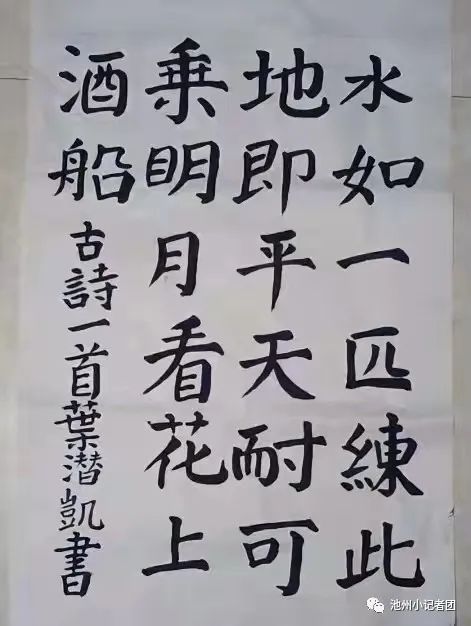 水如一匹練此
地即平天耐可
乗明月看花上
酒船
古詩一首葉潜凱書
池州小记者团